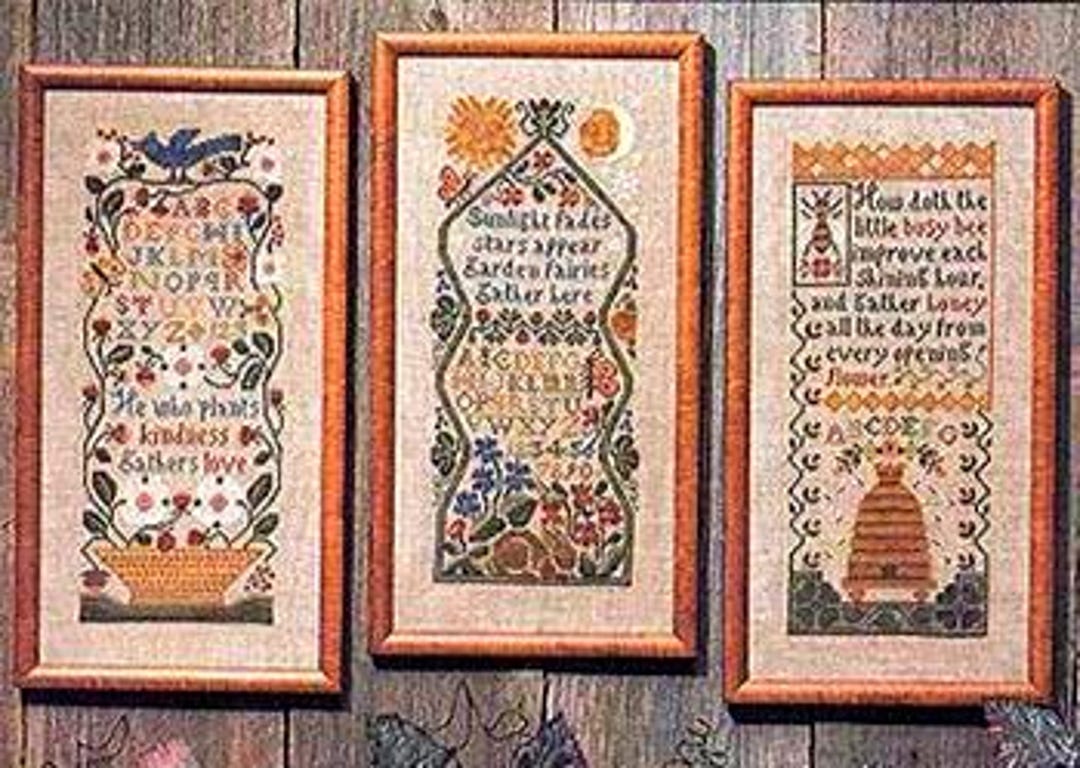 ABC
DEFGHI
JKLM
NOPQR
STUVW
XYZ
He who plants
kindness
Gathers love
Sunlight fades
stars appear
Garden fairies
Gather here
ABCDEFG
OPQRSTU
VWXYZ
345
7890
How doth the
little busy bee
improve each
Shining hour,
and Gather honey
all the day from
every opening
flower.
ABCDEFG